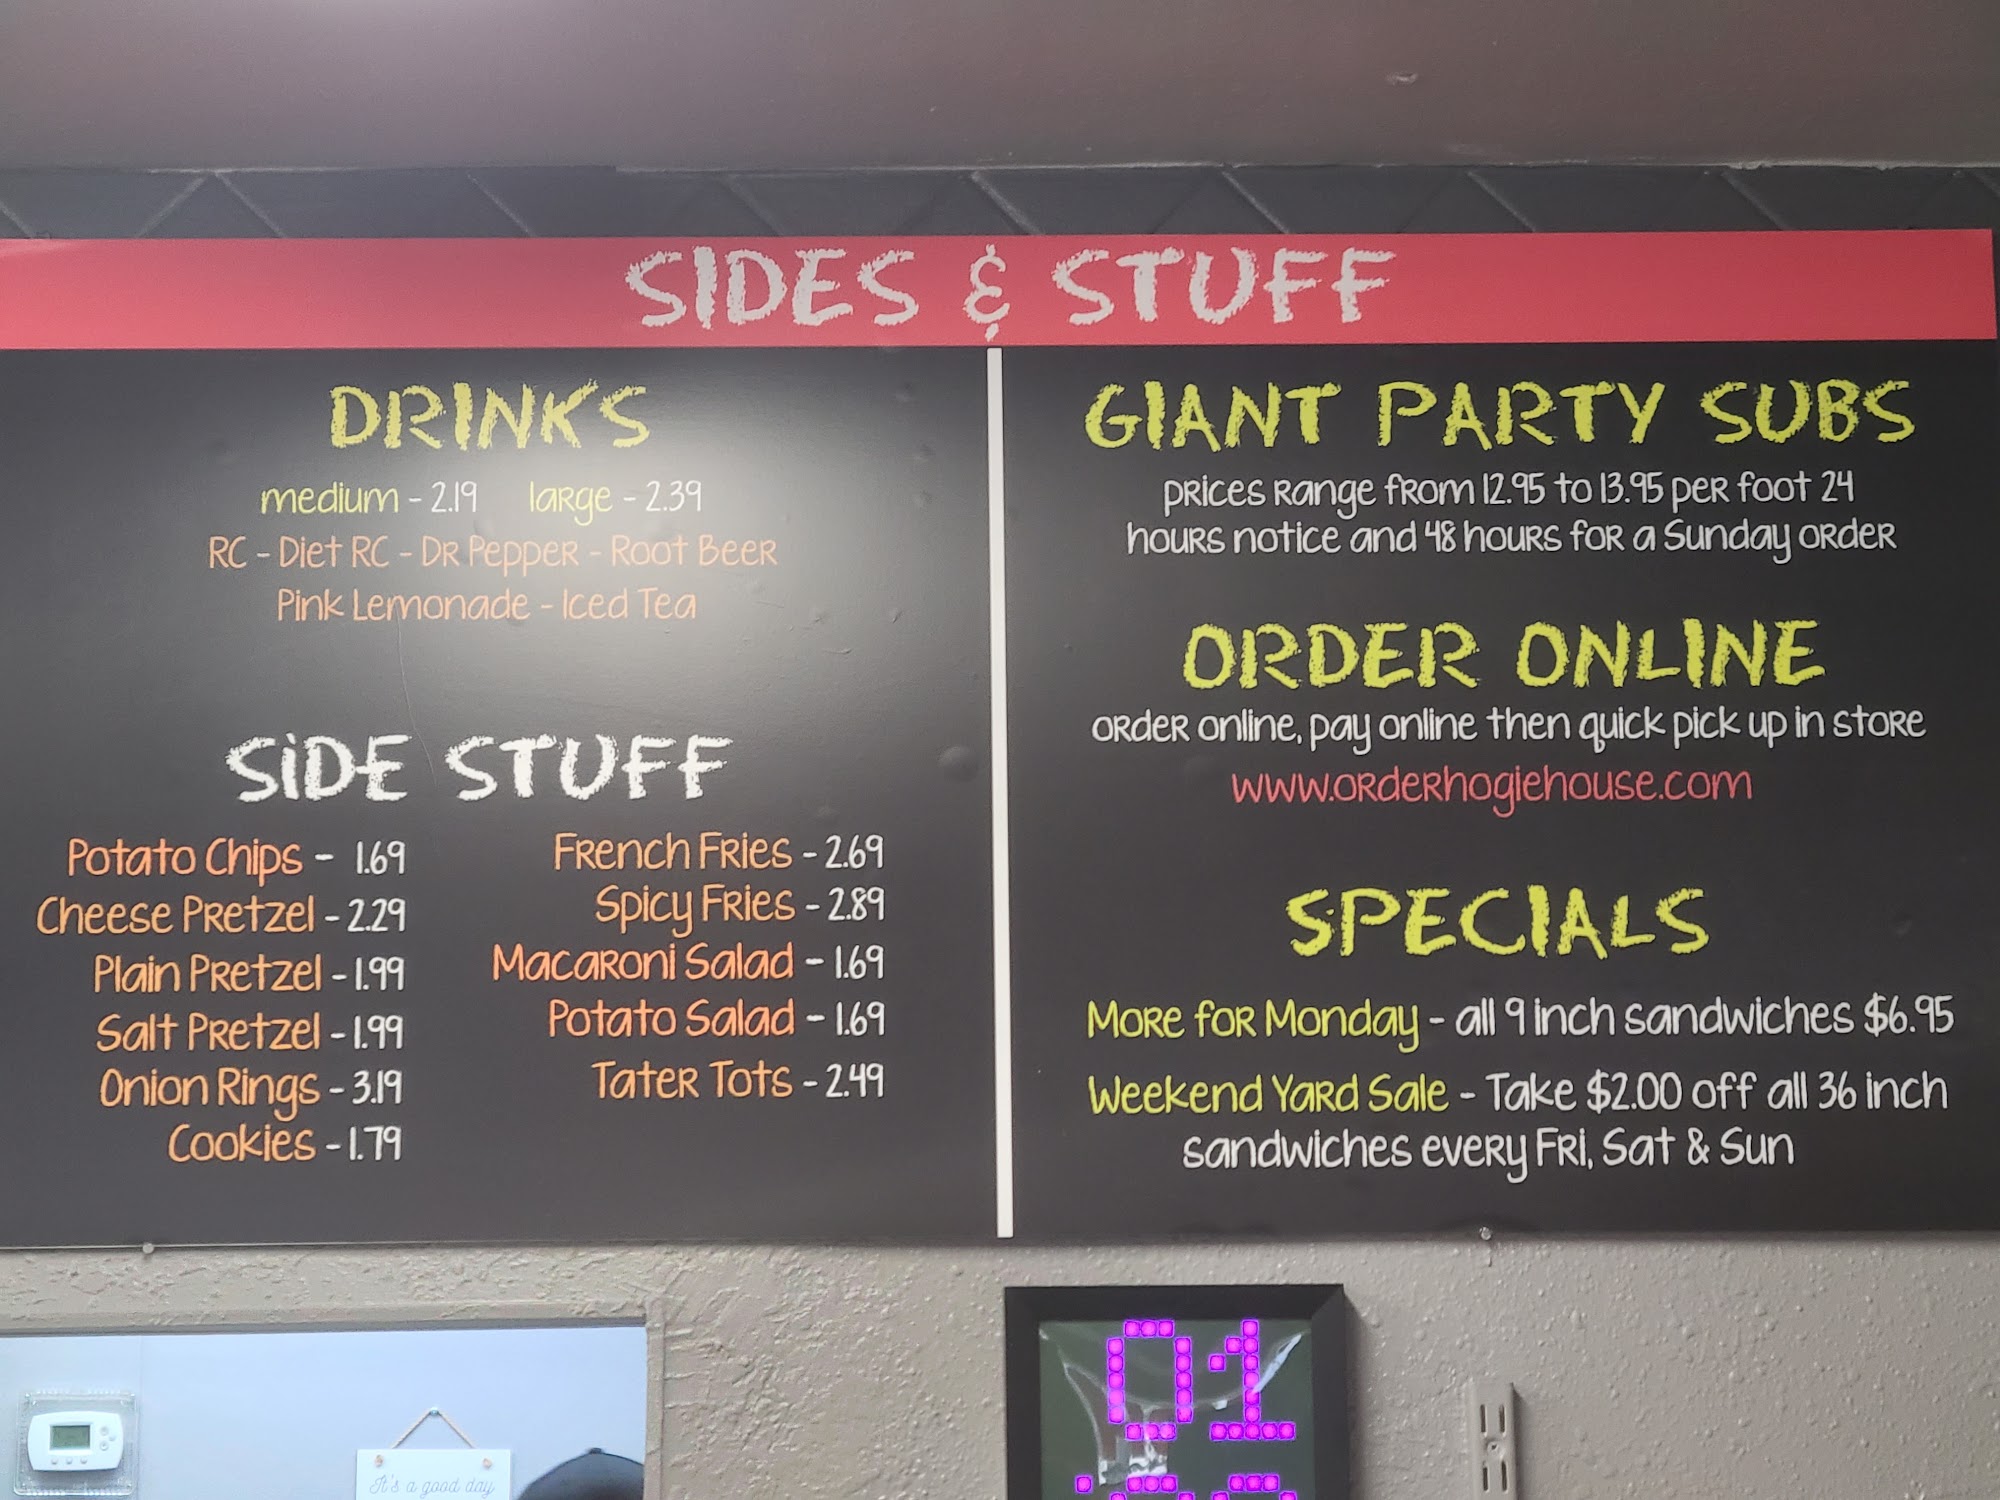 SIDES & STUFF
DRINKS
medium - 2.19 large - 2.39
RC - Diet RC - Dr Pepper - Root Beer
Pink Lemonade - Iced Tea
SIDE STUFF
Potato Chips - 1.69
Cheese Pretzel - 2.29
Plain Pretzel - 1.99
Salt Pretzel - 1.99
Onion Rings - 3.19
Cookies - 1.79
French Fries - 2.69
Spicy Fries - 2.89
Macaroni Salad - 1.69
Potato Salad - 1.69
Tater Tots - 2.49
GIANT PARTY SUBS
prices range from 12.95 to 13.95 per foot 24
hours notice and 48 hours for a Sunday order
ORDER ONLINE
order online, pay online then quick pick up in store
www.orderhogiehouse.com
SPECIALS
More for Monday - all 9 inch sandwiches $6.95
Weekend Yard Sale - Take $2.00 off all 36 inch
sandwiches every Fri, Sat & Sun
01
It's a good day